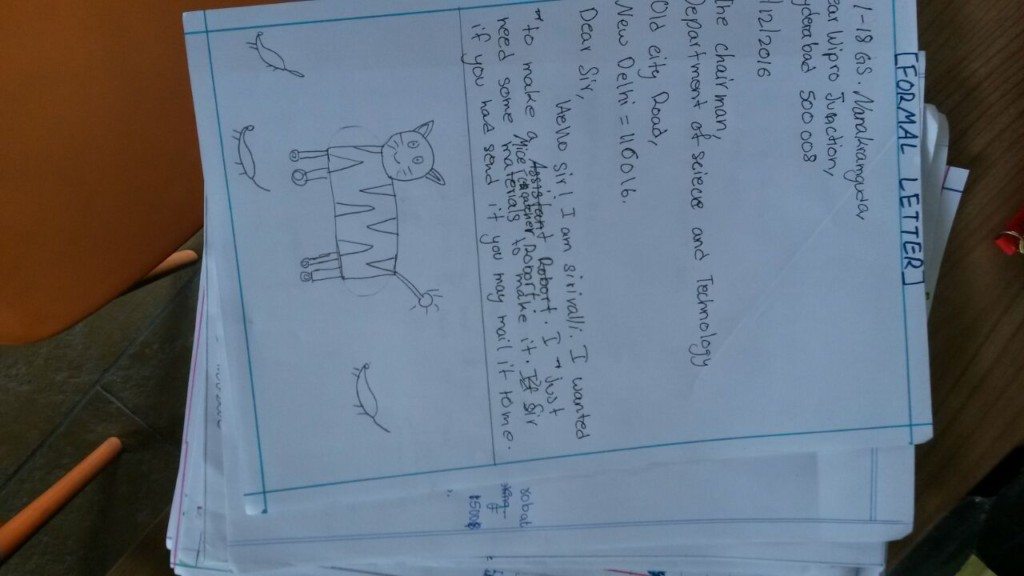 [FORMAL LETTER]
1-18 GS. Nanakramguda,
ear Wipro Junction,
yderabad 500 008
/12/2016
The chairman,
Department of sciece and Technology
Old city Road,
New Delhi = 110016.
Dear Sir,
Hello sir! I am sirivalli. I wanted
to make a Assistant Robort. I Just
Mice Catcher Robort.
need some materials to make it. It Sir
if you had send it you may mail it to me.
robot
$500